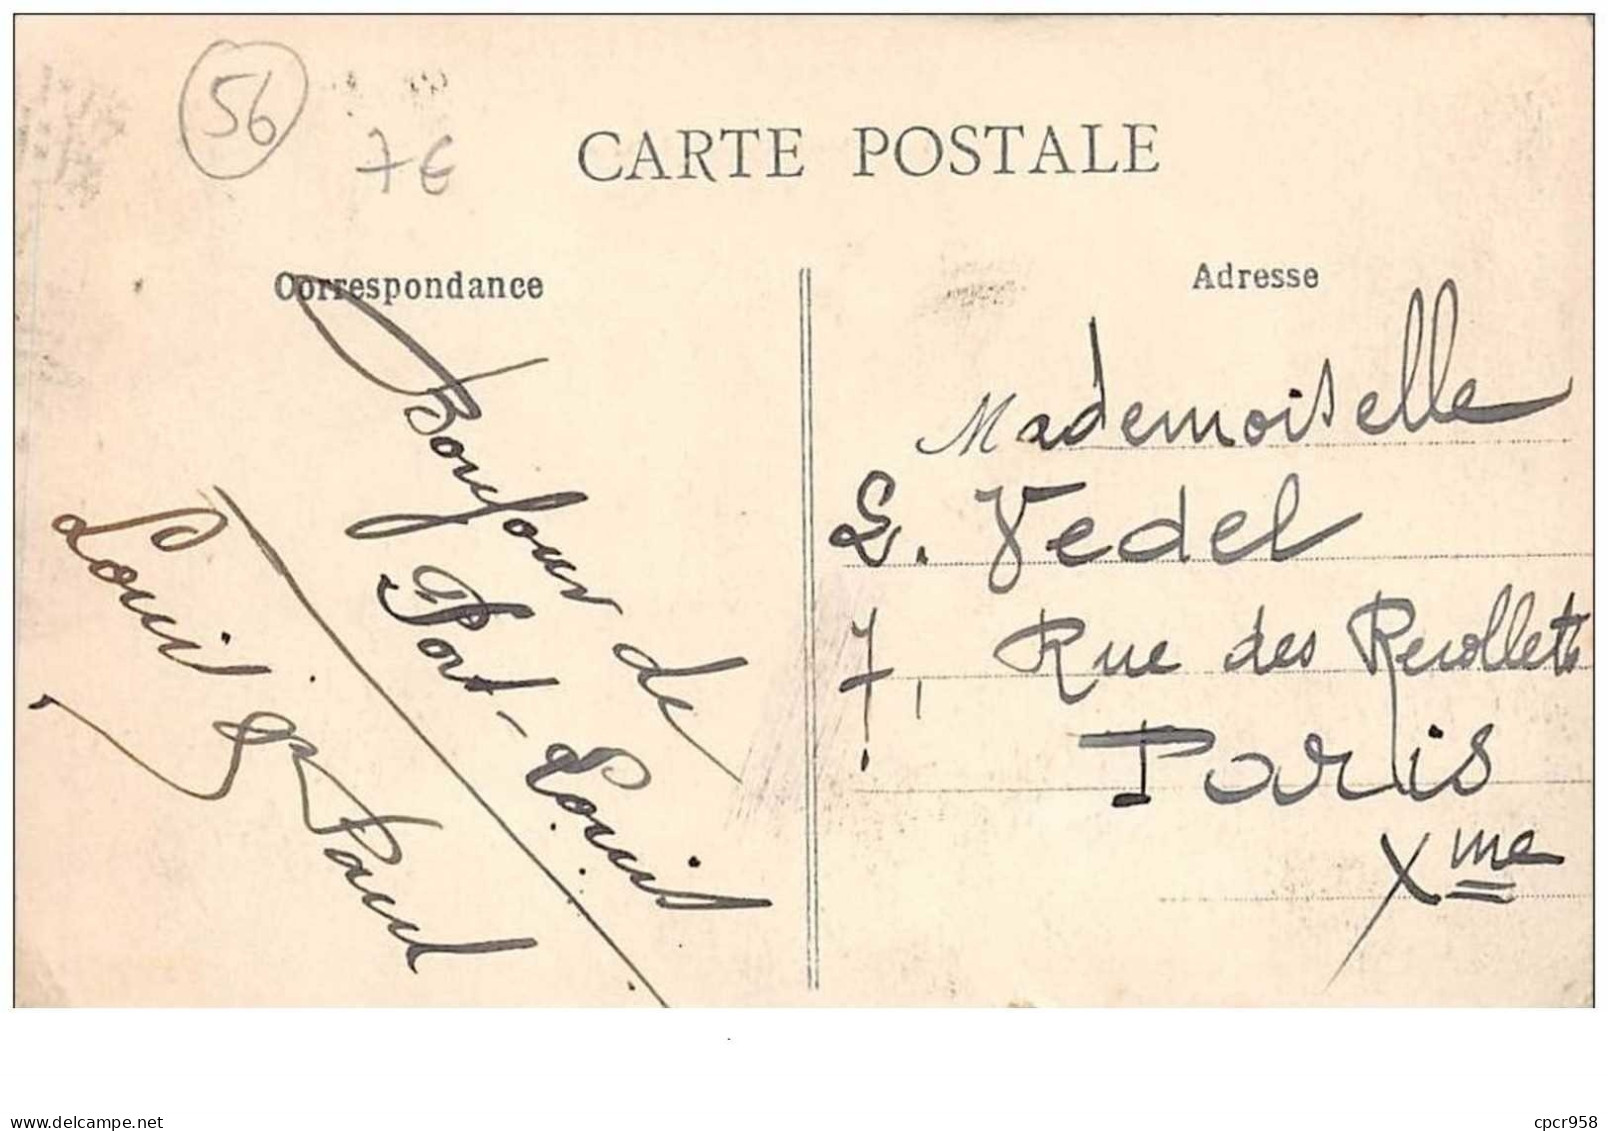 56
7€
CARTE POSTALE
Correspondance
Bonjour de
Port-Louis
Louis &
Paul
Adresse
Mademoiselle
L. Vedel
7, Rue des Recollets
Paris
Xme
delcampe.net
cpcr958